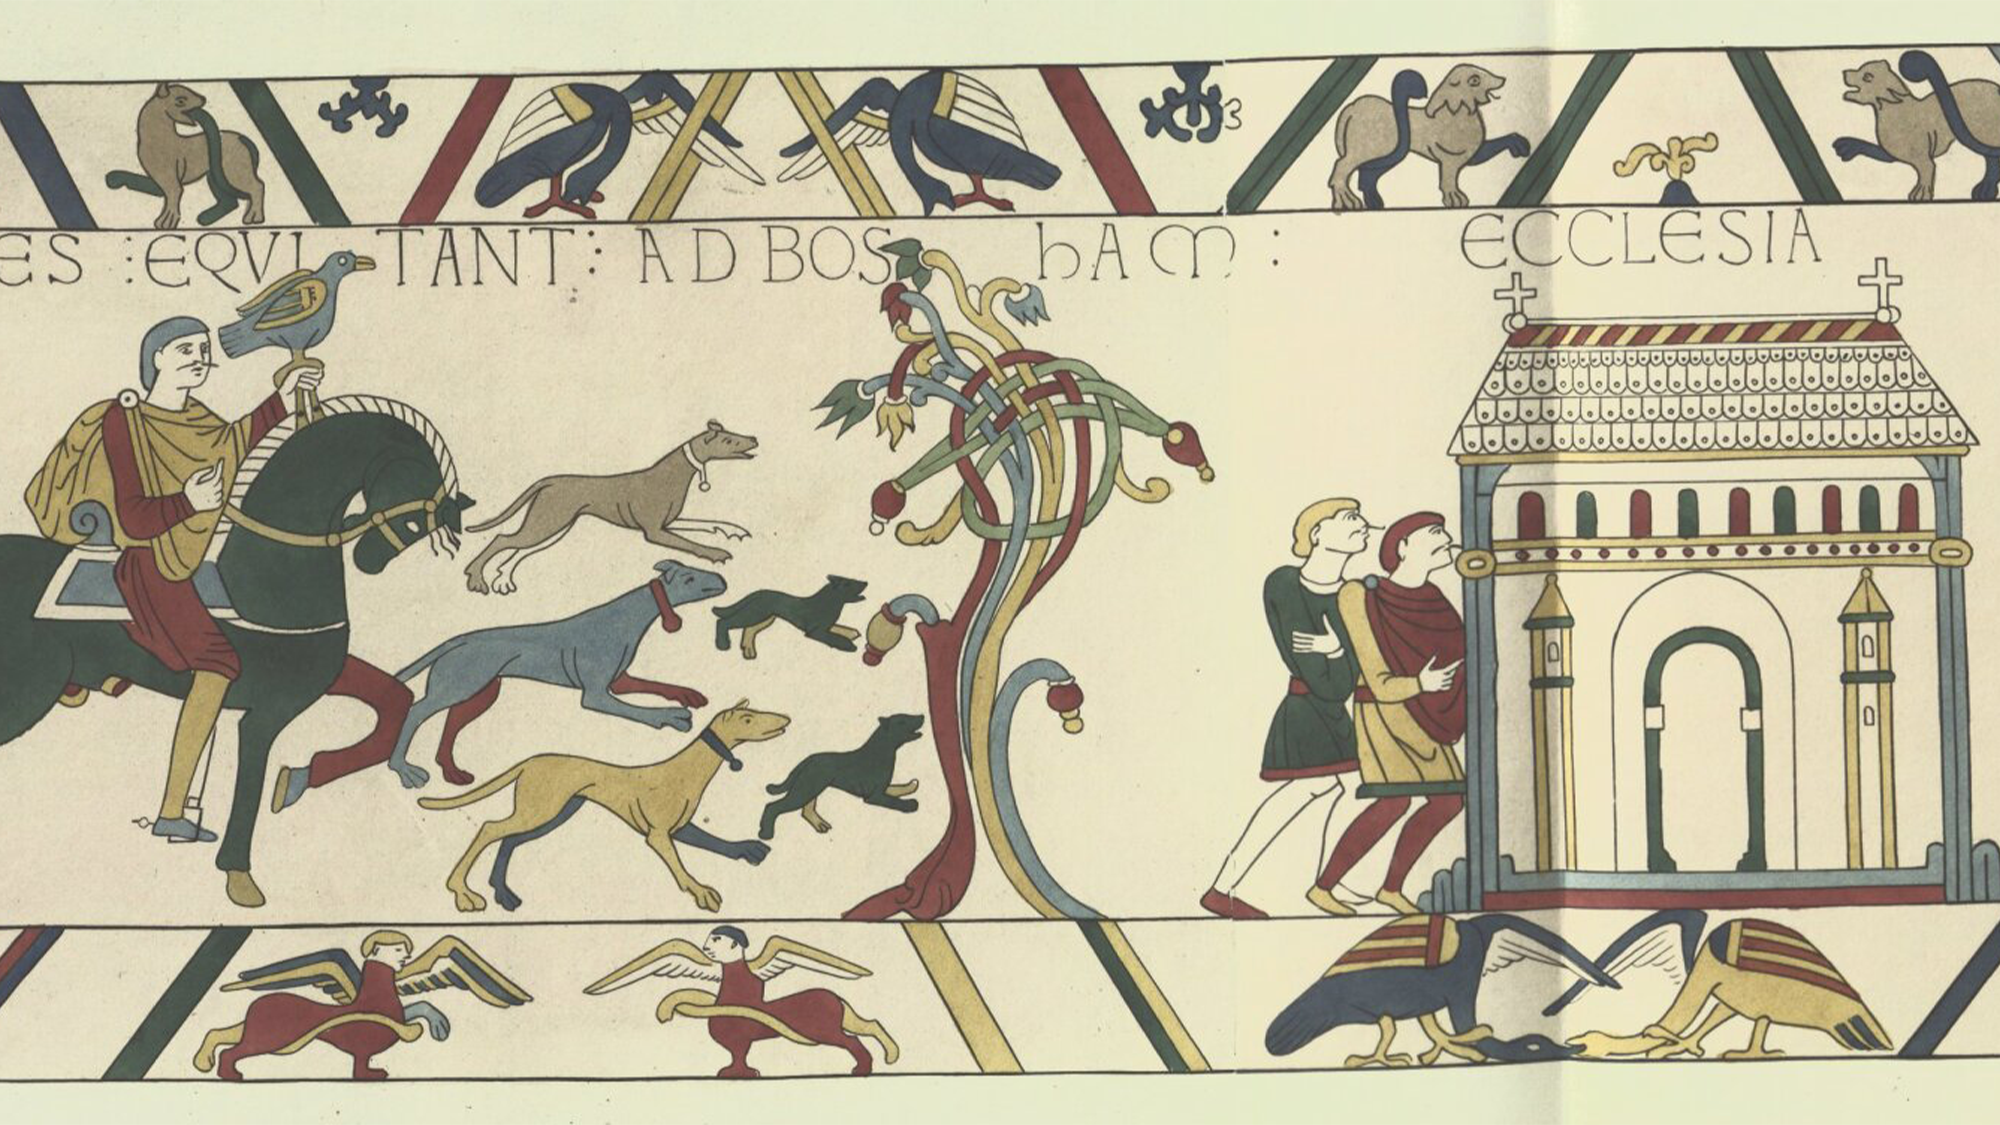 ES : EQVI TANT : AD BOS hAM :
ECCLESIA
3